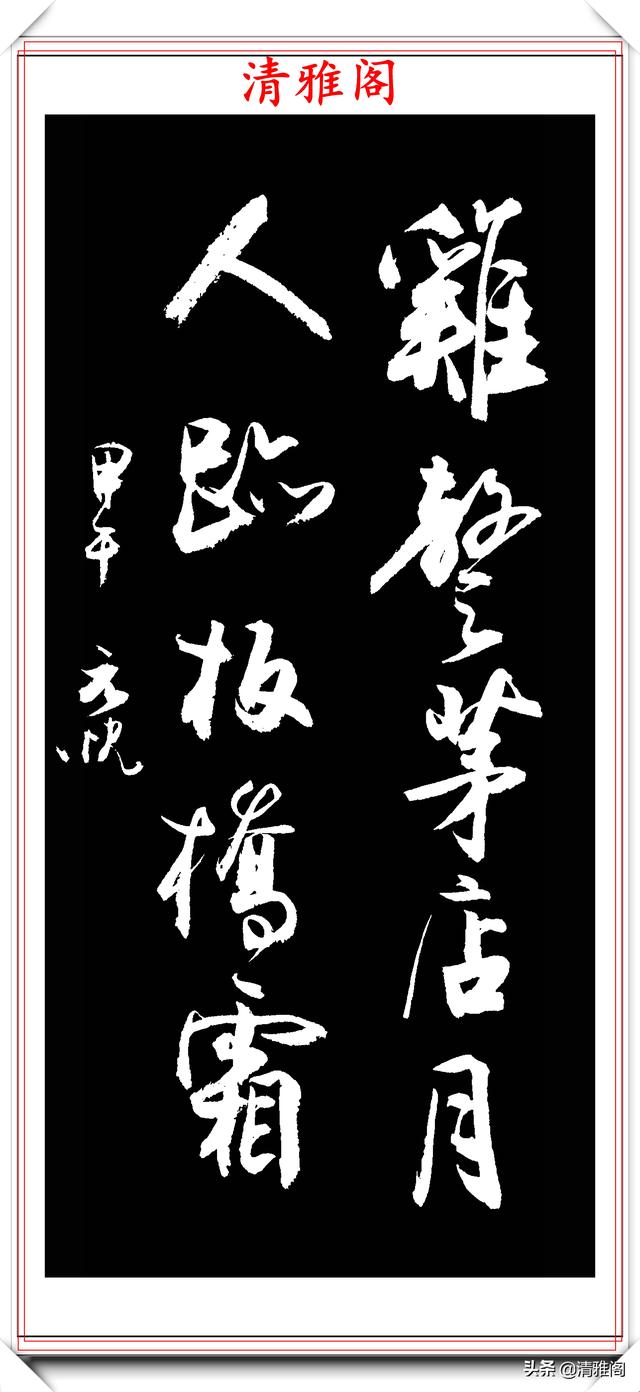 清雅阁
雞聲茅店月
人跡板橋霜
甲午
头条 @清雅阁